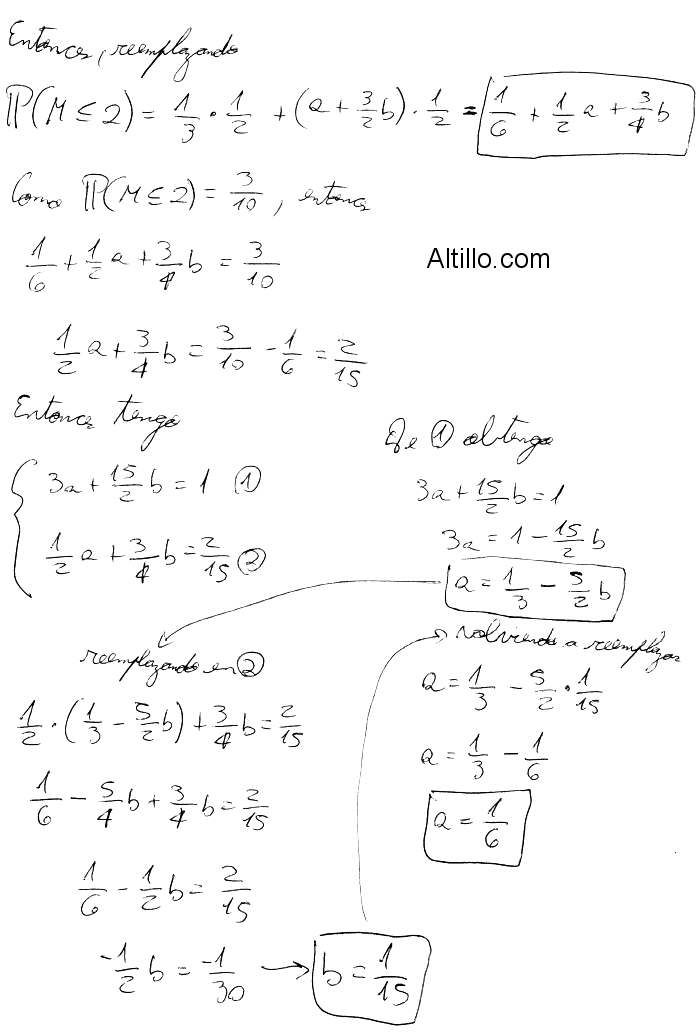 Entonces, reemplazando
ℙ(M ≤ 2) = 1/3 · 1/2 + (a + 3/2 b) · 1/2 = 1/6 + 1/2 a + 3/4 b
Como ℙ(M ≤ 2) = 3/10, entonces
1/6 + 1/2 a + 3/4 b = 3/10
Altillo.com
1/2 a + 3/4 b = 3/10 - 1/6 = 2/15
Entonces tengo
3a + 15/2 b = 1 ①
1/2 a + 3/4 b = 2/15 ②
De ① obtengo
3a + 15/2 b = 1
3a = 1 - 15/2 b
a = 1/3 - 5/2 b
reemplazando en ②
1/2 · (1/3 - 5/2 b) + 3/4 b = 2/15
1/6 - 5/4 b + 3/4 b = 2/15
1/6 - 1/2 b = 2/15
-1/2 b = -1/30 → b = 1/15
volviendo a reemplazar
a = 1/3 - 5/2 · 1/15
a = 1/3 - 1/6
a = 1/6